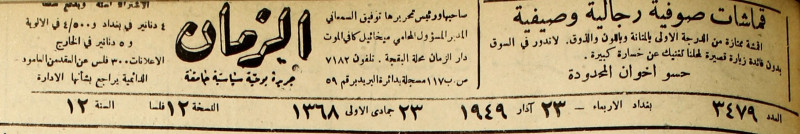 قماشات صوفية رجالية وصيفية
اقمشة ممتازة من الدرجة الاولى بالمتانة وبالالوان والذوق. لاندور في السوق
بدون فائدة زيارة قصيرة لمحلنا تغنيك عن خسارة كبيرة.
حسو اخوان المحدودة
صاحبها ورئيس تحريرها توفيق السمعاني
المدير المسؤول المحامي ميخائيل كافي الموت
دار الزمان محلة البقجة. تلفون ٧١٨٢
ص.ب ١١٧ مسجلة بدائرة البريد برقم ٥٩
الزمان
جريدة يومية سياسية جامعة
٤ دنانير في بغداد و ٤/٥٠٠ في الالوية
و ٥ دنانير في الخارج
الاعلانات ٣٠٠ فلس عن العقد من العامود
الدائمية يراجع بشأنها الادارة
العدد ٣٤٧٩ بغداد الاربعاء – ٢٣ آذار ١٩٤٩ ٢٣ جمادي الاولى ١٣٦٨ النسخة ١٢ فلسا السنة ١٢